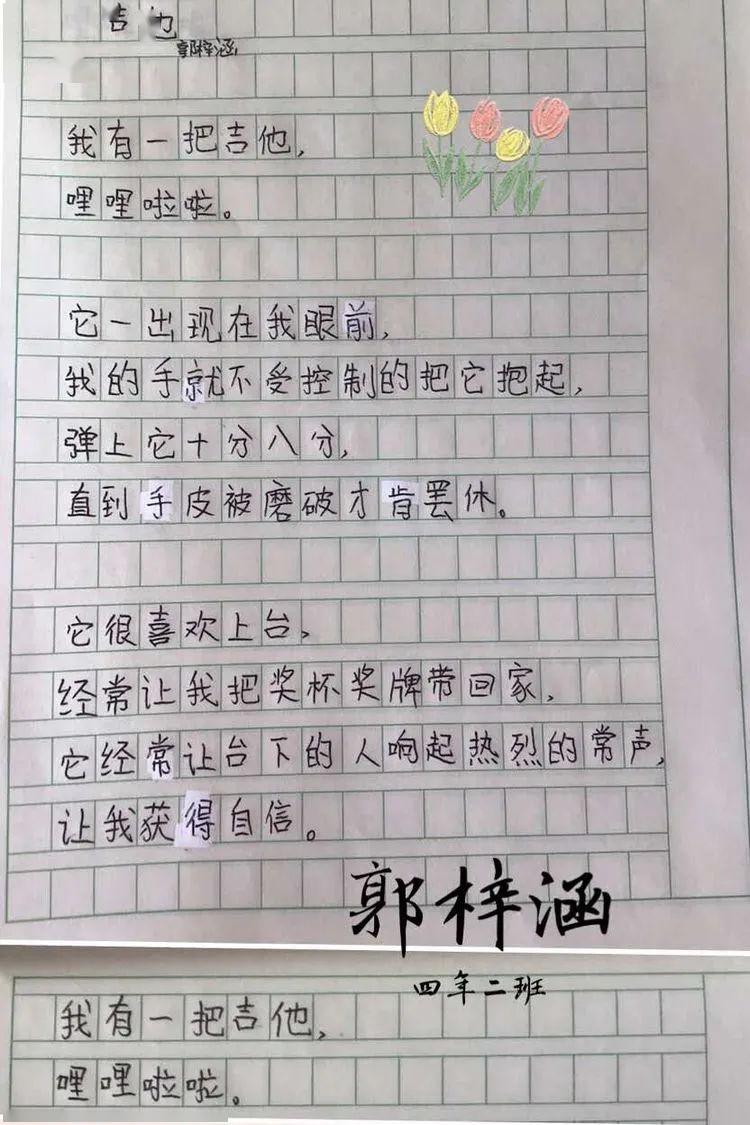 吉他
郭梓涵
我有一把吉他，
哩哩啦啦。
它一出现在我眼前，
我的手就不受控制的把它抱起，
弹上它十分八分，
直到手皮被磨破才肯罢休。
它很喜欢上台，
经常让我把奖杯奖牌带回家，
它经常让台下的人响起热烈的常声，
让我获得自信。
郭梓涵
四年二班
我有一把吉他，
哩哩啦啦。